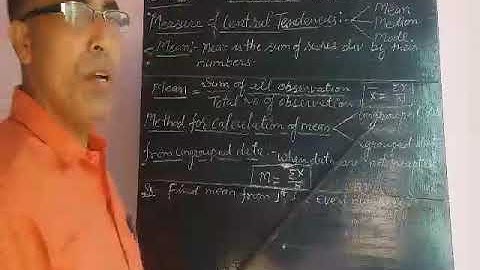 Measure of Central Tendencies:- Mean
Median
Mode
Mean:- Mean is the sum of scores div by their
numbers.
Mean = Sum of all observation
Total no of observation
X = ΣX
Method for calculation of mean
ungrouped
grouped data
from ungrouped data - when data are not repeated
M = ΣX
Find mean from Ist 5 even numbers